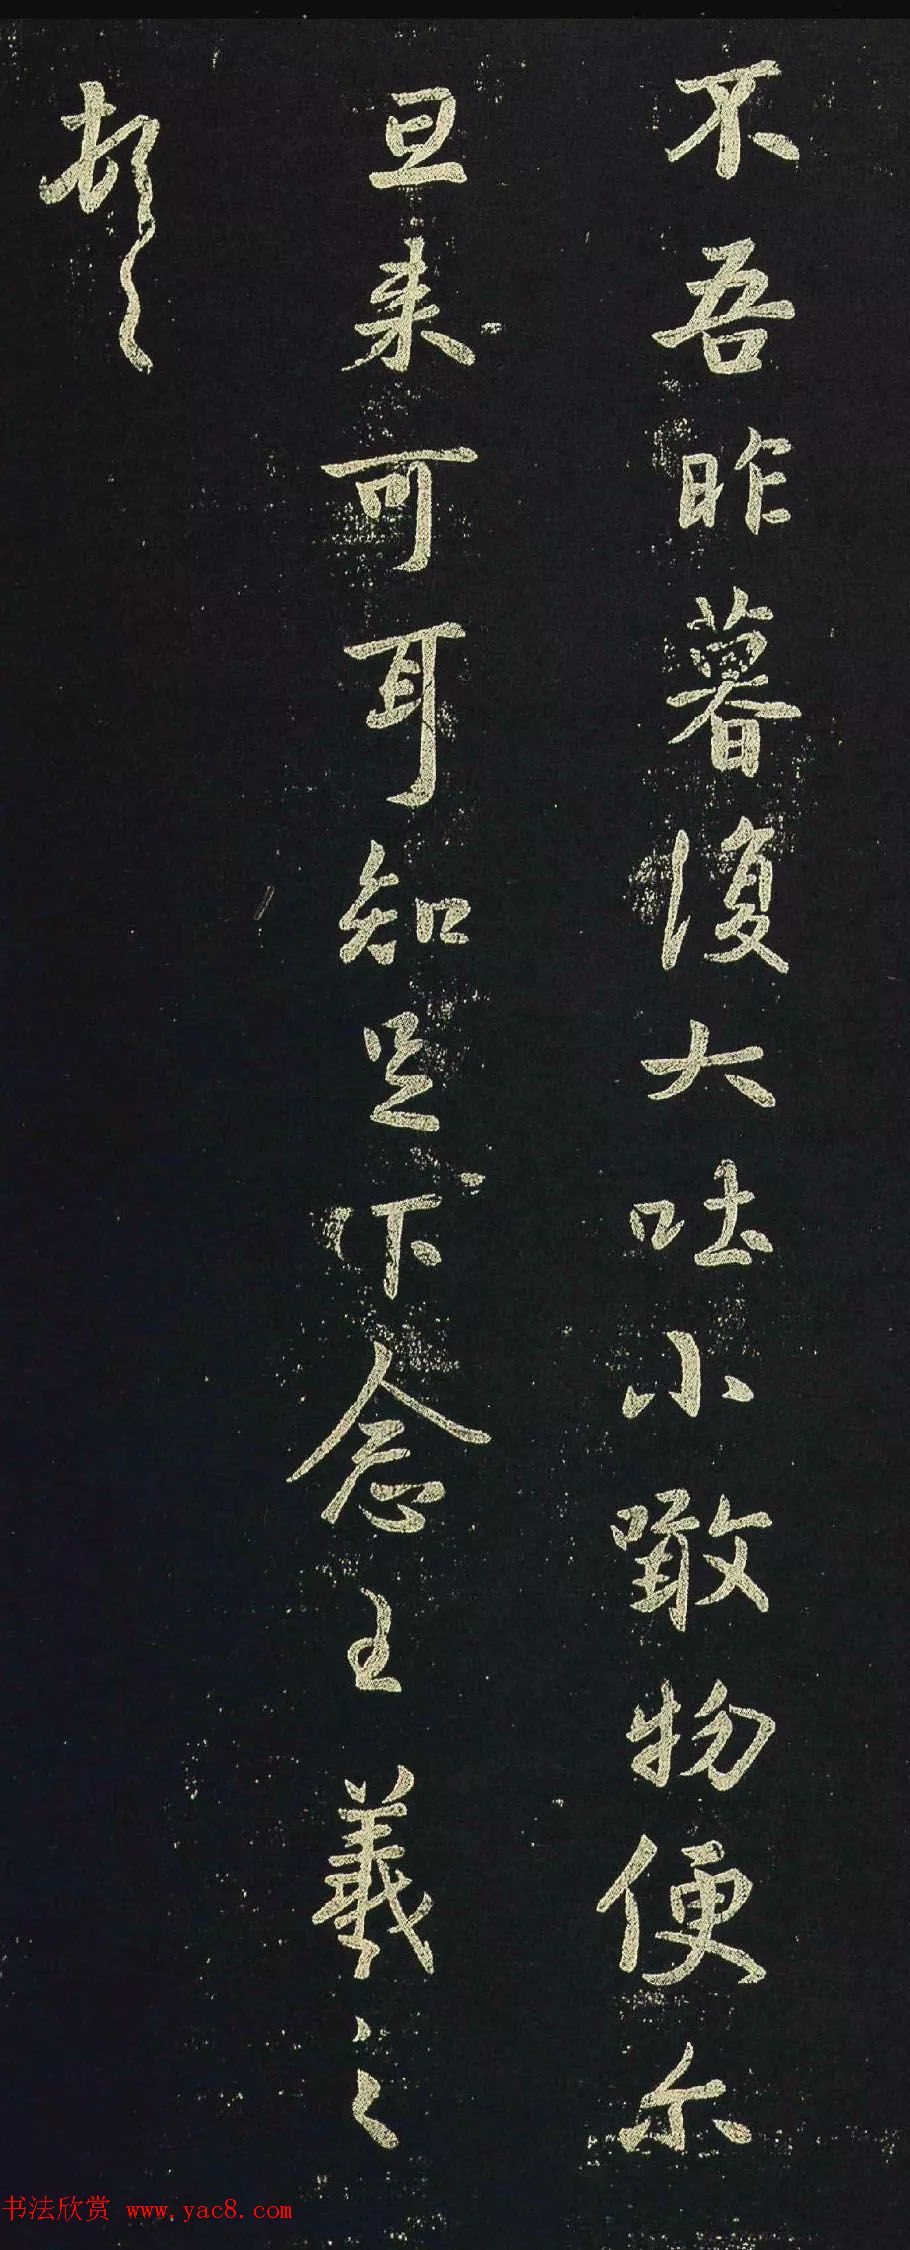 不吾昨暮復大吐小噉物便尔
旦来可耳知足下念王羲之
頓
书法欣赏 www.yac8.com